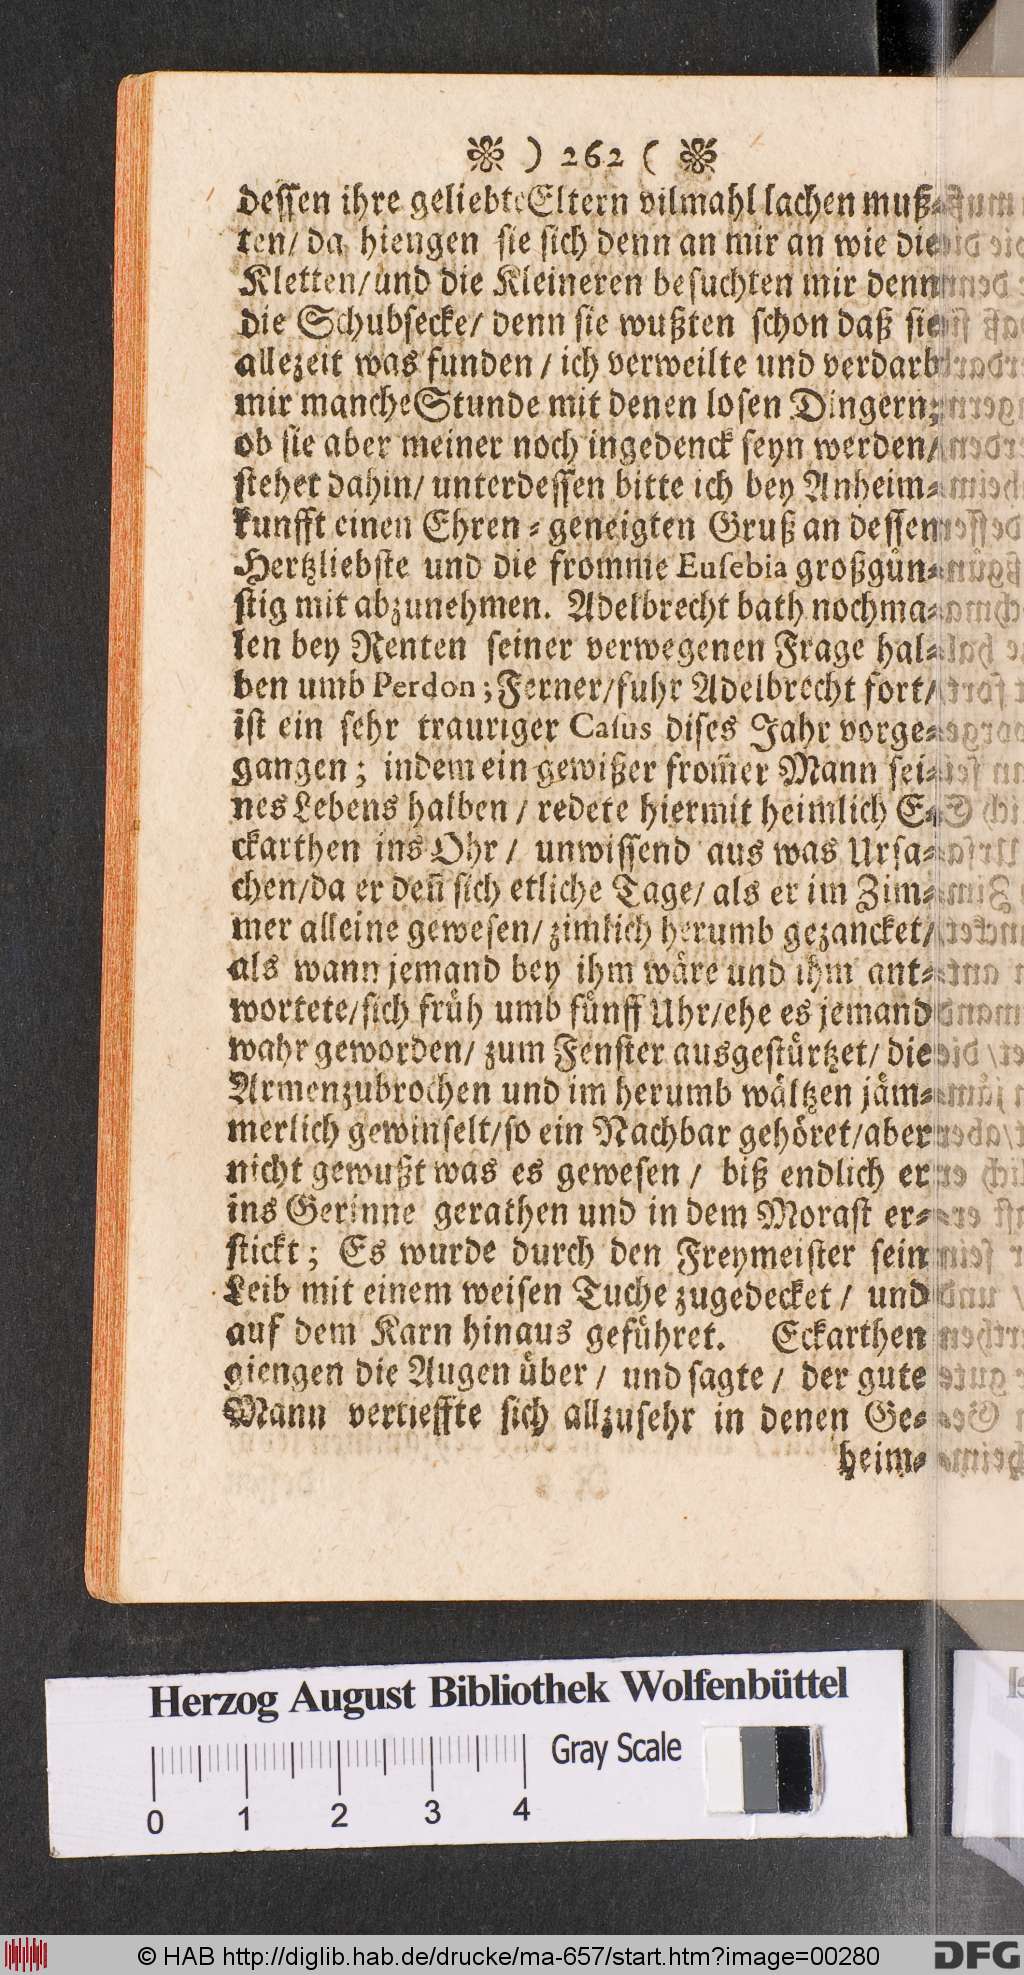 ❀ ) 262 ( ❀
dessen ihre geliebte Eltern vilmahl lachen muß-
ten/ da hiengen sie sich denn an mir an wie die
Kletten/ und die Kleineren besuchten mir denn
die Schubsecke/ denn sie wußten schon daß sie
allezeit was funden / ich verweilte und verdarb
mir manche Stunde mit denen losen Dingern;
ob sie aber meiner noch ingedenck seyn werden/
stehet dahin/ unterdessen bitte ich bey Anheim-
kunfft einen Ehren-geneigten Gruß an dessen
Hertzliebste und die fromme Eusebia großgün-
stig mit abzunehmen. Adelbrecht bath nochma-
len bey Renten seiner verwegenen Frage hal-
ben umb Perdon; Ferner/ fuhr Adelbrecht fort/
ist ein sehr trauriger Casus dises Jahr vorge-
gangen; indem ein gewißer from̃er Mann sei-
nes Lebens halben / redete hiermit heimlich E-
ckarthen ins Ohr / unwissend aus was Ursa-
chen/ da er deñ sich etliche Tage/ als er im Zim-
mer alleine gewesen/ zimlich herumb gezancket/
als wann jemand bey ihm wäre und ihm ant-
wortete/ sich früh umb fünff Uhr/ ehe es jemand
wahr geworden/ zum Fenster ausgestürtzet/ die
Armen zubrochen und im herumb wältzen jäm-
merlich gewinselt/ so ein Nachbar gehöret/ aber
nicht gewußt was es gewesen / biß endlich er
ins Gerinne gerathen und in dem Morast er-
stickt; Es wurde durch den Freymeister sein
Leib mit einem weisen Tuche zugedecket / und
auf dem Karn hinaus geführet. Eckarthen
giengen die Augen über / und sagte / der gute
Mann vertieffte sich allzusehr in denen Ge-
heim-
Herzog August Bibliothek Wolfenbüttel
Gray Scale
0 1 2 3 4
© HAB http://diglib.hab.de/drucke/ma-657/start.htm?image=00280
DFG